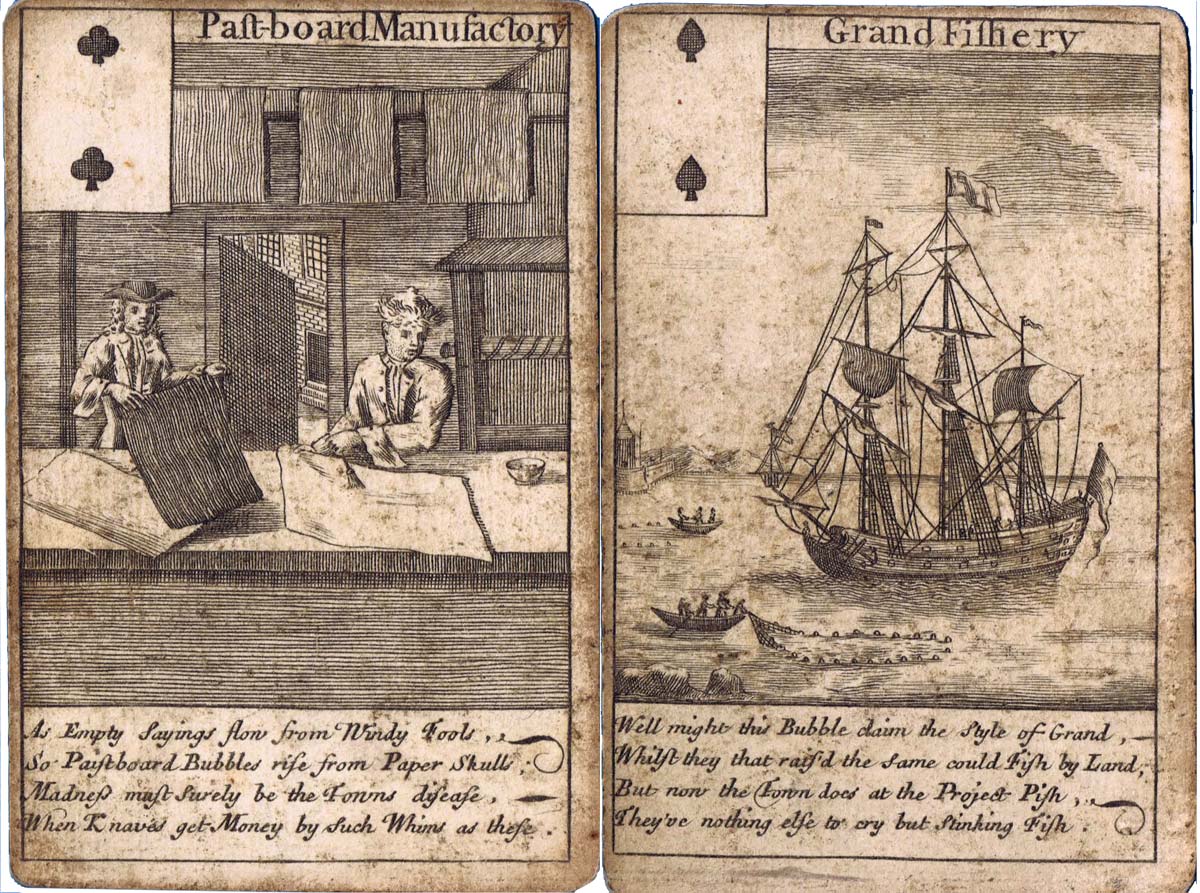 Paſt-board Manufactory
As Empty Sayings flow from Windy Fools,
So Paiſtboard Bubbles riſe from Paper Skulls;
Madneſs muſt Surely be the Towns diſeaſe,
When Knaves get Money by Such Whims as theſe.
Grand Fiſhery
Well might this Bubble claim the Style of Grand,
Whilſt they that rais'd the same could Fiſh by Land;
But now the Town does at the Project Piſh,
They've nothing elſe to cry but Stinking Fiſh.